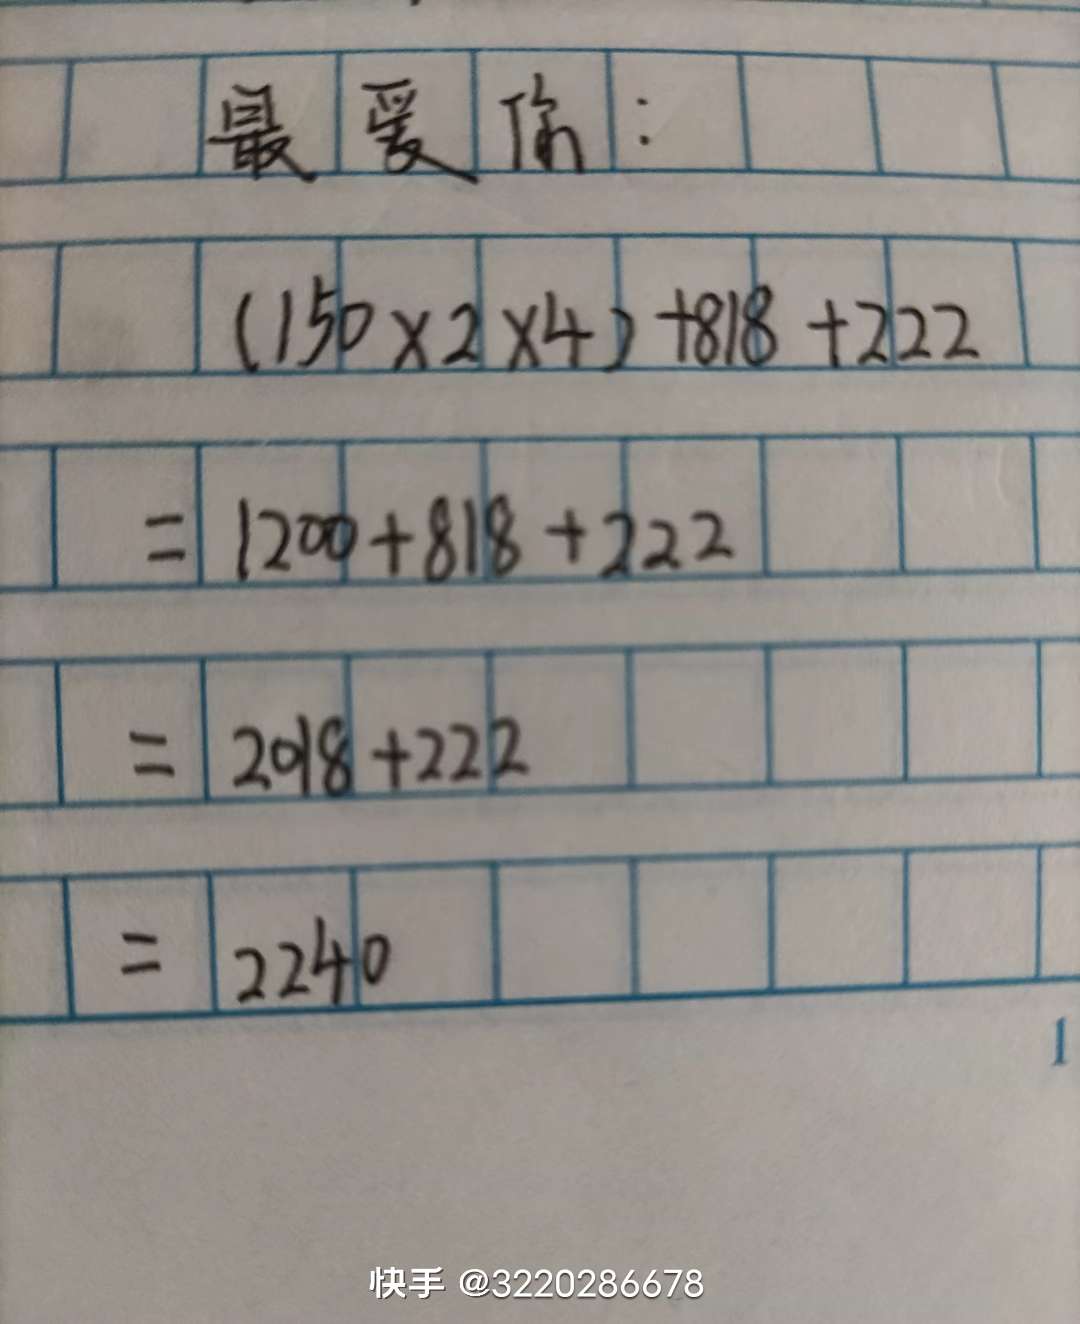 最爱你:
(150×2×4)+818+222
=1200+818+222
=2018+222
=2240
1
快手 @3220286678